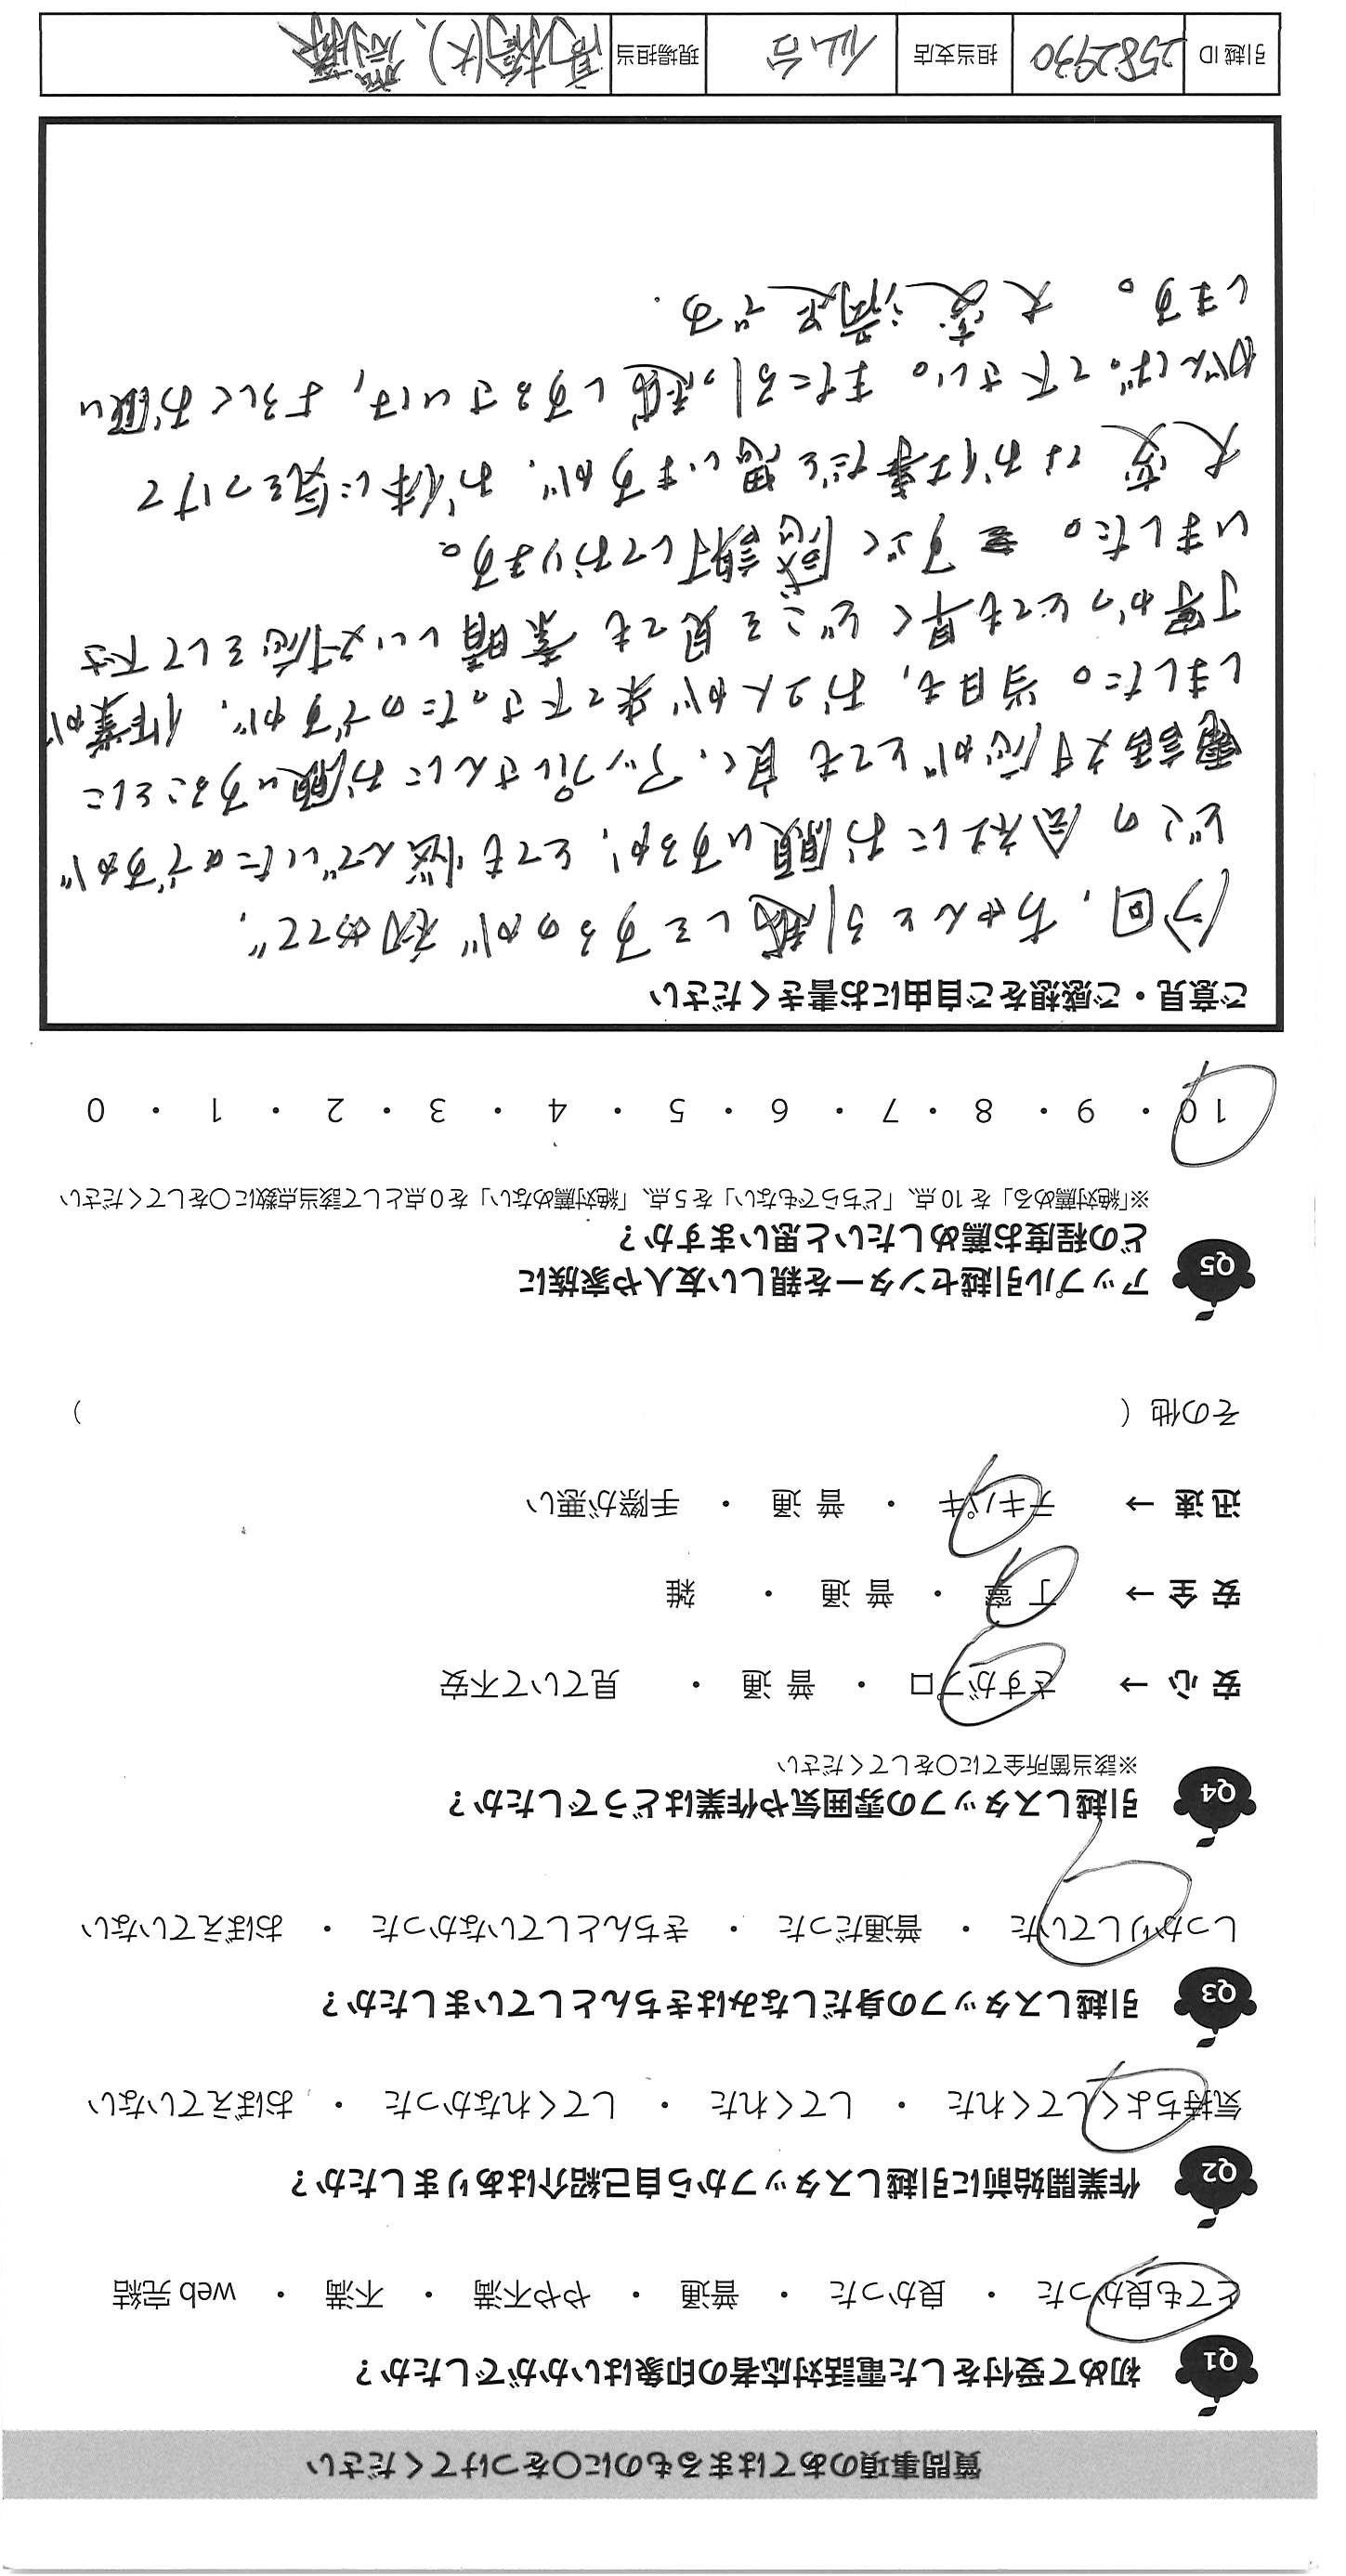 質問事項のあてはまるものに○をつけてください
Q1 初めて受付をした電話対応者の印象はいかがでしたか？
とても良かった ・ 良かった ・ 普通 ・ やや不満 ・ 不満 ・ web 完結
Q2 作業開始前に引越しスタッフから自己紹介はありましたか？
気持ちよくしてくれた ・ してくれた ・ してくれなかった ・ おぼえていない
Q3 引越しスタッフの身だしなみはきちんとしていましたか？
しっかりしていた ・ 普通だった ・ きちんとしていなかった ・ おぼえていない
Q4 引越しスタッフの雰囲気や作業はどうでしたか？
※該当箇所全てに○をしてください
安 心 → さすがプロ ・ 普 通 ・ 見ていて不安
安 全 → 丁 寧 ・ 普 通 ・ 雑
迅 速 → テキパキ ・ 普 通 ・ 手際が悪い
その他（ ）
Q5 アップル引越センターを親しい友人や家族に
どの程度お薦めしたいと思いますか？
※「絶対薦める」を 10 点、「どちらでもない」を 5 点、「絶対薦めない」を 0 点として該当点数に○をしてください
10 ・ 9 ・ 8 ・ 7 ・ 6 ・ 5 ・ 4 ・ 3 ・ 2 ・ 1 ・ 0
ご意見・ご感想をご自由にお書きください
今回、ちゃんと引越しをするのが初めてで、
どこの会社にお願いするか、とても悩んでいたのですが
電話対応がとても良く、アップルさんにお願いすることに
しました。当日も、お2人が来て下さったのですが、作業が
丁寧かつとても早くどこを見ても素晴しい対応をして下さ
いました。すごく感謝しております。
大変なお仕事だと思いますが、お体に気をつけて
がんばって下さい。また引っ越しするさいは、よろしくお願い
します。 大変満足です.
引越 ID 2582930 担当支店 仙台 現場担当 高橋(大)、齋藤